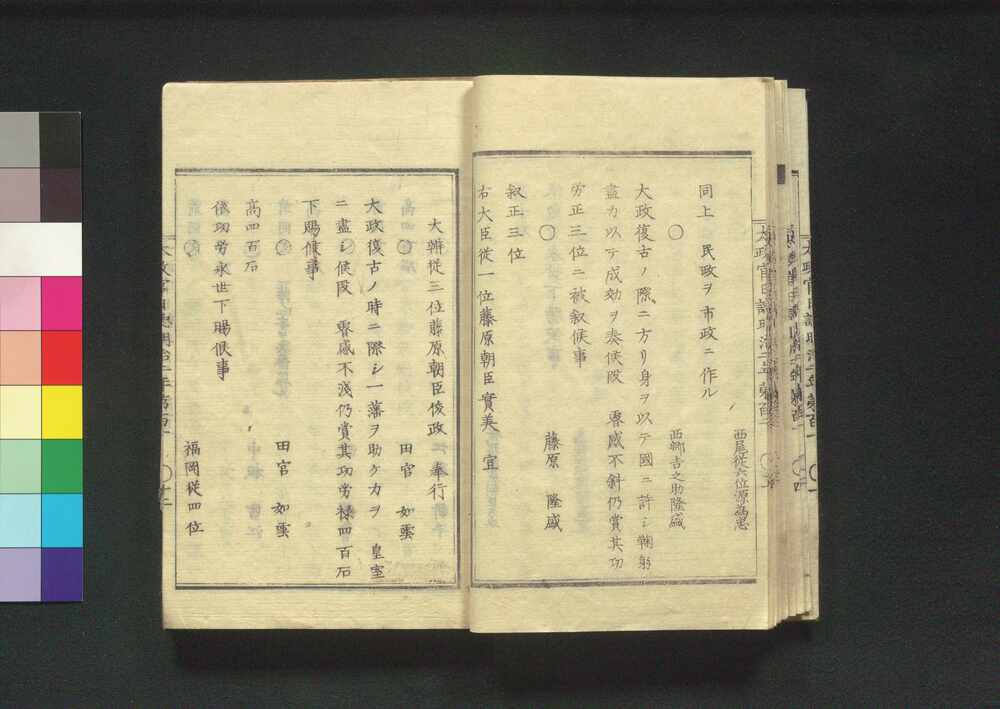 西尾従六位源為忠
同上 民政ヲ市政ニ作ル
〇 西郷吉之助隆盛
大政復古ノ際ニ方リ身ヲ以テ國ニ許シ鞠躬
盡力以テ成効ヲ奏候段 睿感不斜仍賞其功
労正三位ニ被叙候事
〇 藤原 隆盛
叙正三位
右大臣従一位藤原朝臣實美 宣
大辨従三位藤原朝臣俊政 奉行
〇 田宮 如雲
大政復古ノ時ニ際シ一藩ヲ助ケ力ヲ 皇室
ニ盡シ候段 睿感不淺仍賞其功労禄四百石
下賜候事
〇 田宮 如雲
高四百石
依功労永世下賜候事
〇 福岡従四位